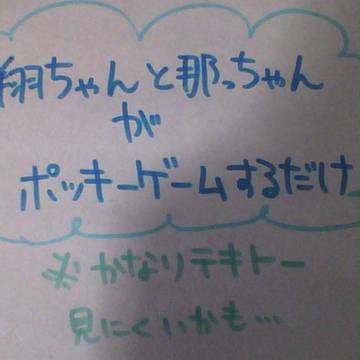 翔ちゃんと那っちゃん
が
ポッキーゲームするだけ
※かなりテキトー
見にくいかも…